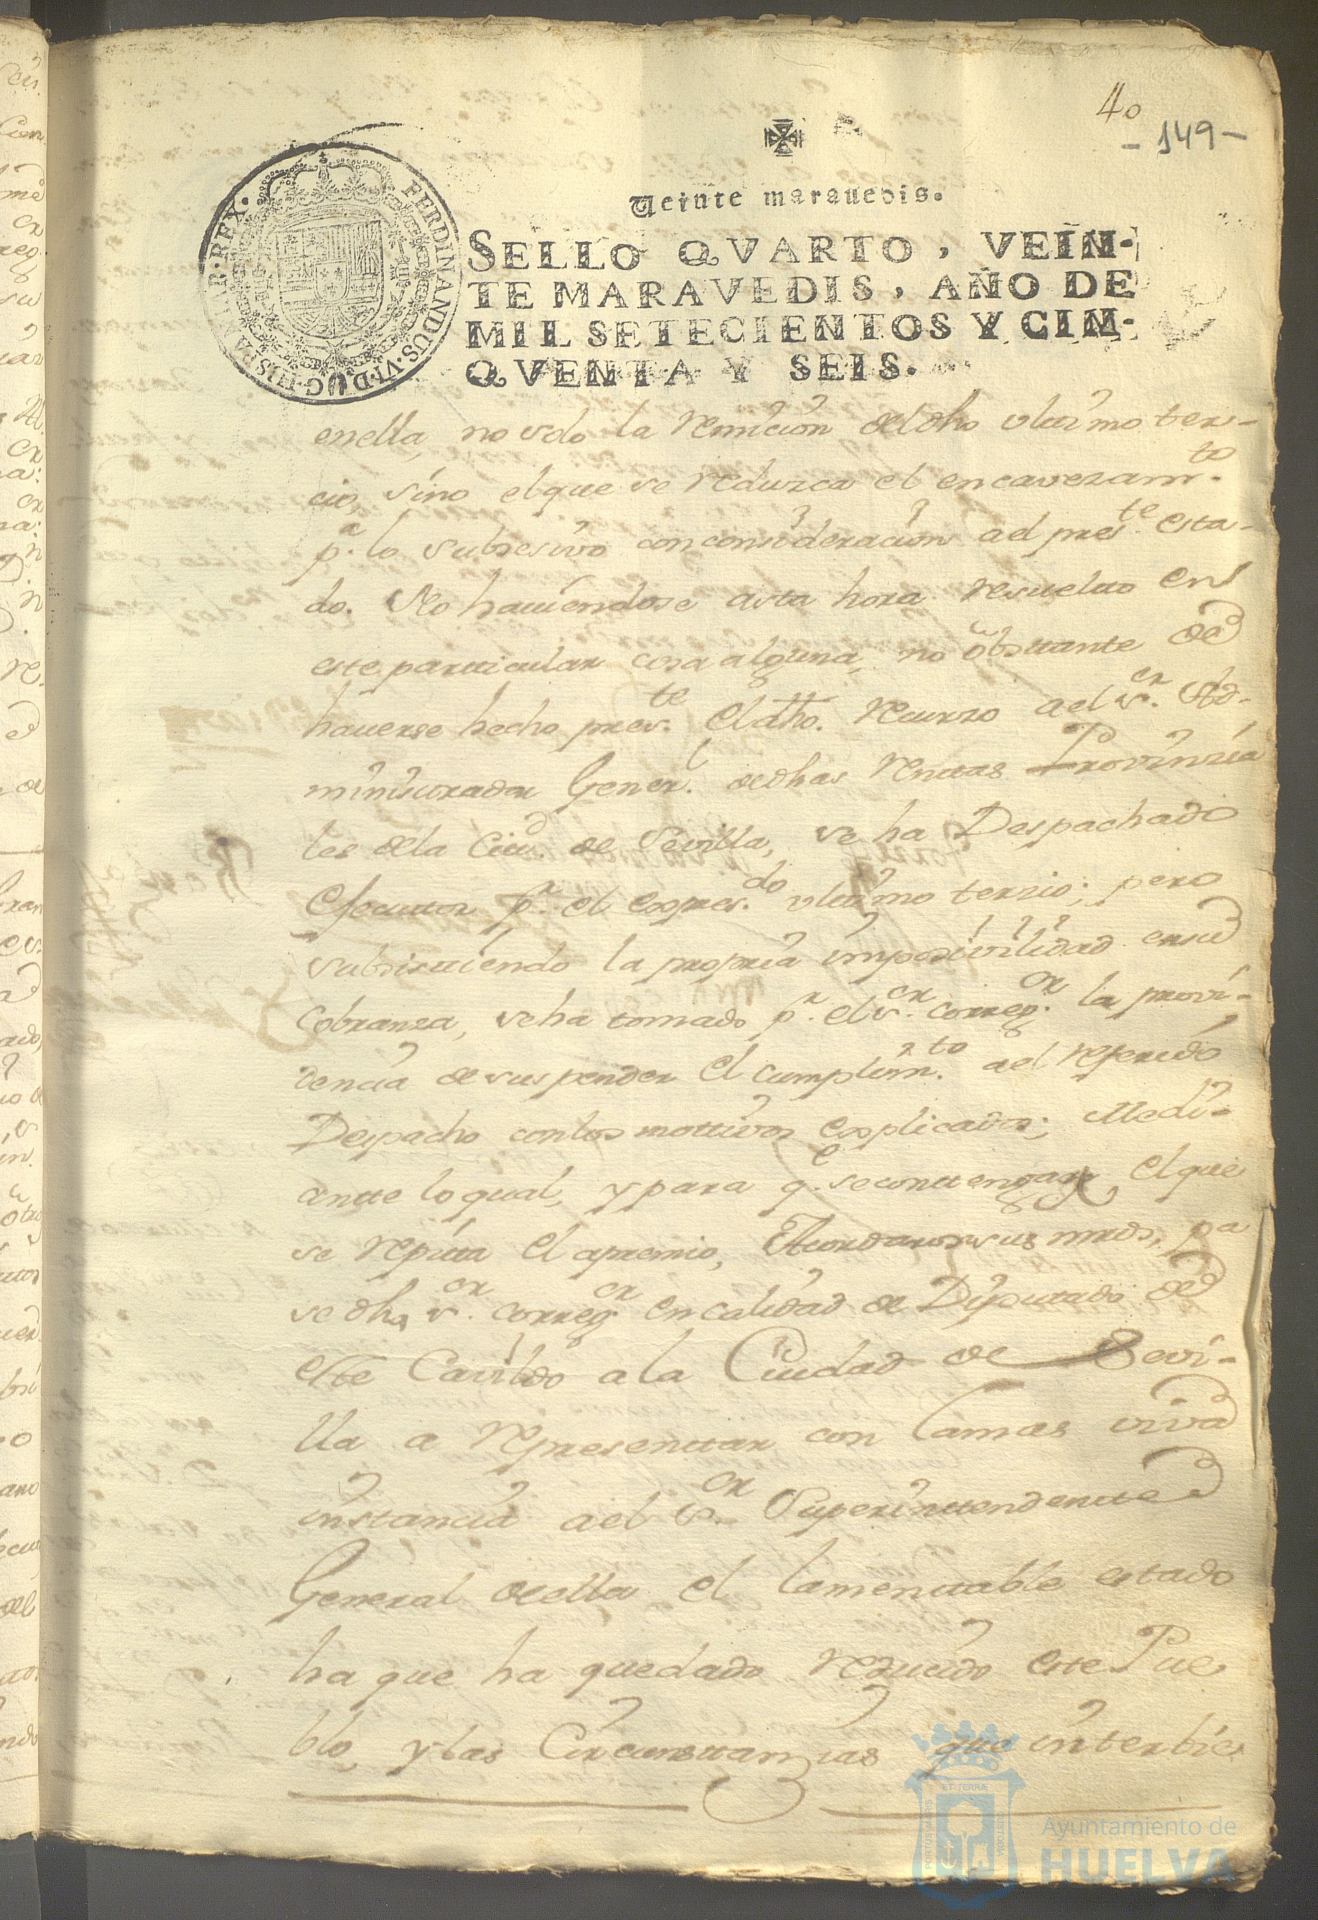 40
- 149 -
Veinte maravedis.
SELLO QVARTO, VEIN-
TE MARAVEDIS, AÑO DE
MIL SETECIENTOS Y CIN-
QVENTA Y SEIS.
FERDINANDUS·VI·D·G·HISPANIAR·REX·
enella, no solo la remicion deldho ultimo ter-
cio, sino elque se reduzca el encavezam.to
p.a lo subsesivo conconsideracion ael pres.te esta-
do. No haviendose asta hora resuelto en
este particular cosa alguna, no obsttante de
haverse hecho pres.te el dho. recurzo ael s.or Ad-
ministrador Gener.l dedhas renttas Provinzia
les dela Ciu.d de Sevilla, se ha Despachado
efecutor p.a el expres.do ultimo terzio; pero
subsistiendo la propria imposivilidad ensu
cobranza, seha tomado p.r el s.or correg.or la provi-
dencia de suspender el cumplim.to ael referido
Despacho conlos mottivos explicados; Medi-
antte loqual, y para q.e seconttenga el que
se repitta el apremio, Acordaron sus mrds, pa
se dho s.or correg.or en calidad de Diputado de
este Cavildo a la Ciudad de Sevi-
lla a representtar con lamas viva
instancia ael s.or Superinttendentte
General deella el lamenttable estado
ha que ha quedado reducido este Pue
blo, y las Circunsttanzias que interbie
Ayuntamiento de
HUELVA